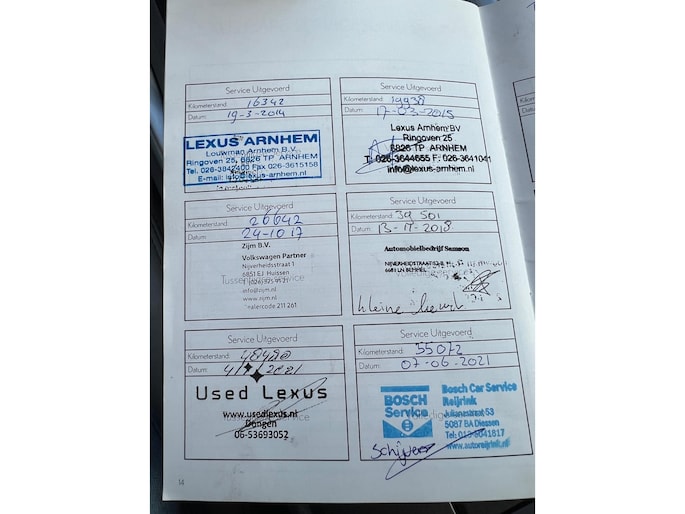 Service Uitgevoerd
Kilometerstand: 16342
Datum: 19-3-2014
LEXUS ARNHEM
Louwman Arnhem B.V.
Ringoven 25, 6826 TP ARNHEM
Tel. 026-3842400 Fax 026-3615158
E-mail: info@lexus-arnhem.nl
Service Uitgevoerd
Kilometerstand: 19938
Datum: 17-03-2015
Lexus Arnhem BV
Ringoven 25
6826 TP ARNHEM
T: 026-3644655 F: 026-3641041
info@lexus-arnhem.nl
Service Uitgevoerd
Kilometerstand: 26642
Datum: 24-10-17
Zijm B.V.
Volkswagen Partner
Nijverheidsstraat 1
6851 EJ Huissen
info@zijm.nl
www.zijm.nl
Dealercode 211 261
Service Uitgevoerd
Kilometerstand: 39 501
Datum: 2018
Automobielbedrijf Samson
6681 LN BEMMEL
kleine beurt
Service Uitgevoerd
Kilometerstand:
Datum: 2021
Used Lexus
www.usedlexus.nl
Dongen
06-53693052
Service Uitgevoerd
Kilometerstand: 55072
Datum: 07-06-2021
BOSCH
Service
Bosch Car Service
Reijrink
Julianastraat 53
5087 BA Diessen
Tel: 013-5041817
www.autoreijrink.nl
14